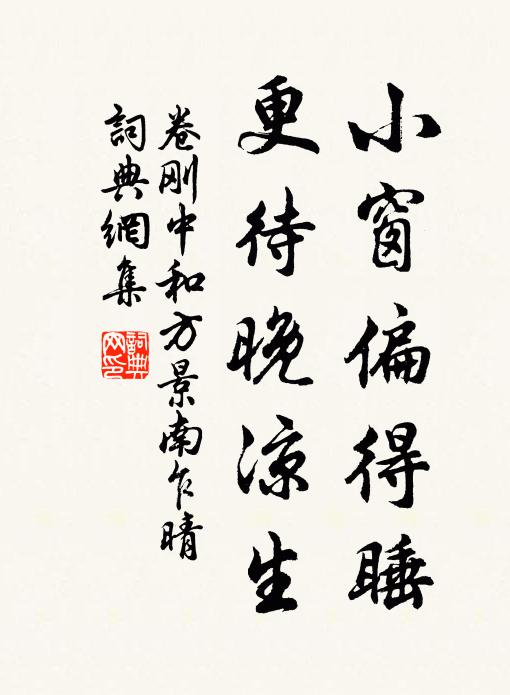 小窗偏得睡
更待晚凉生
卷刚中和方景南乍晴
詞典網集
詞典网印